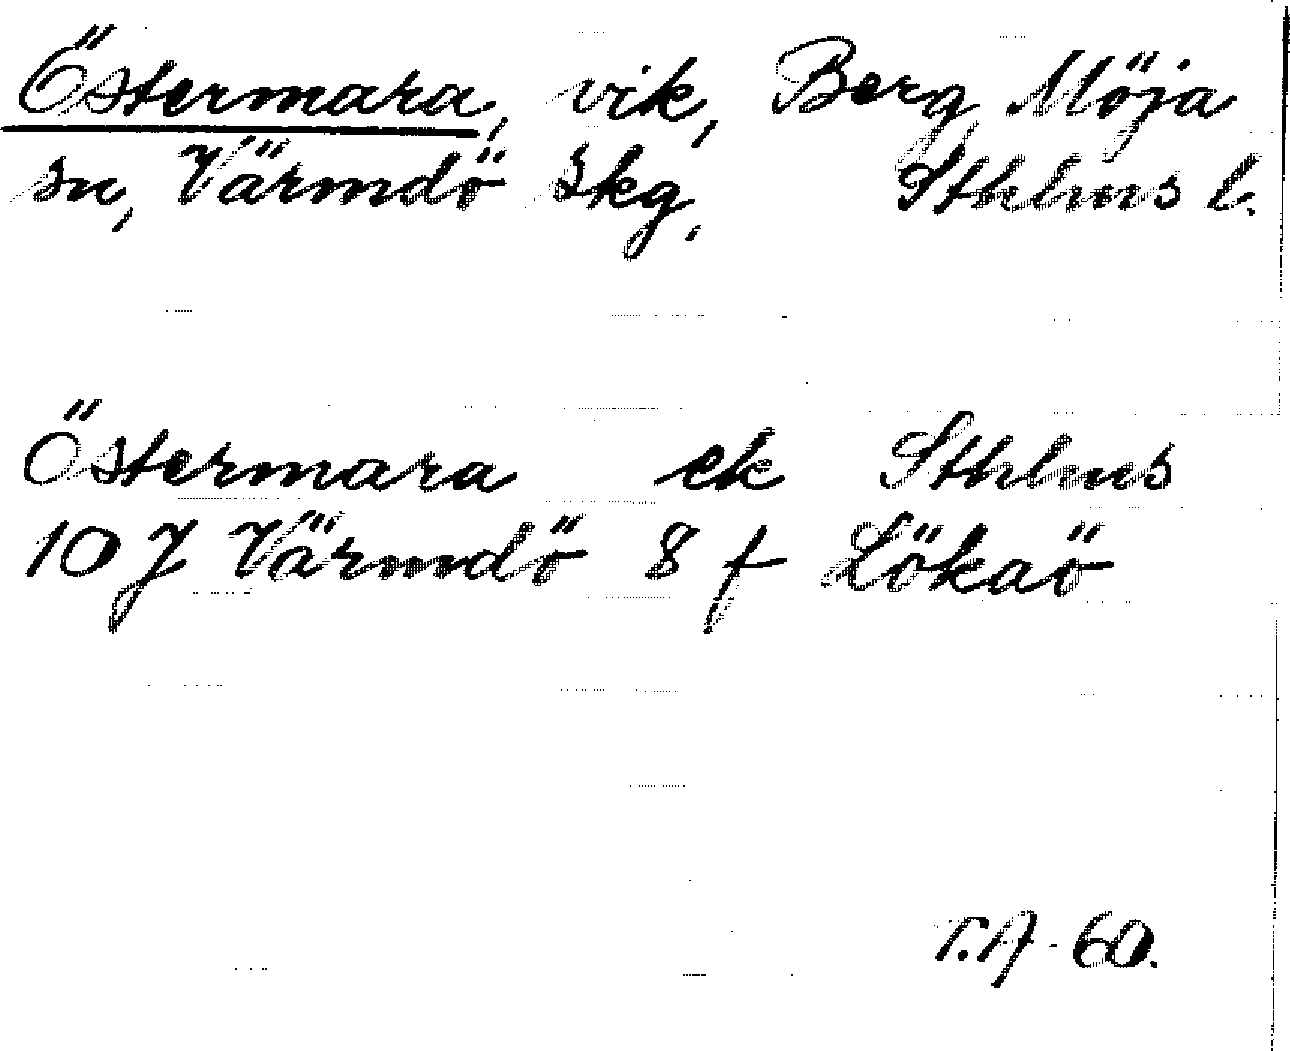 Östermara, vik, Berg Möja
sn, Värmdö skg, Sthlms l.
Östermara ek Sthlms
10 J Värmdö 8 f Lökaö
T.A-60.